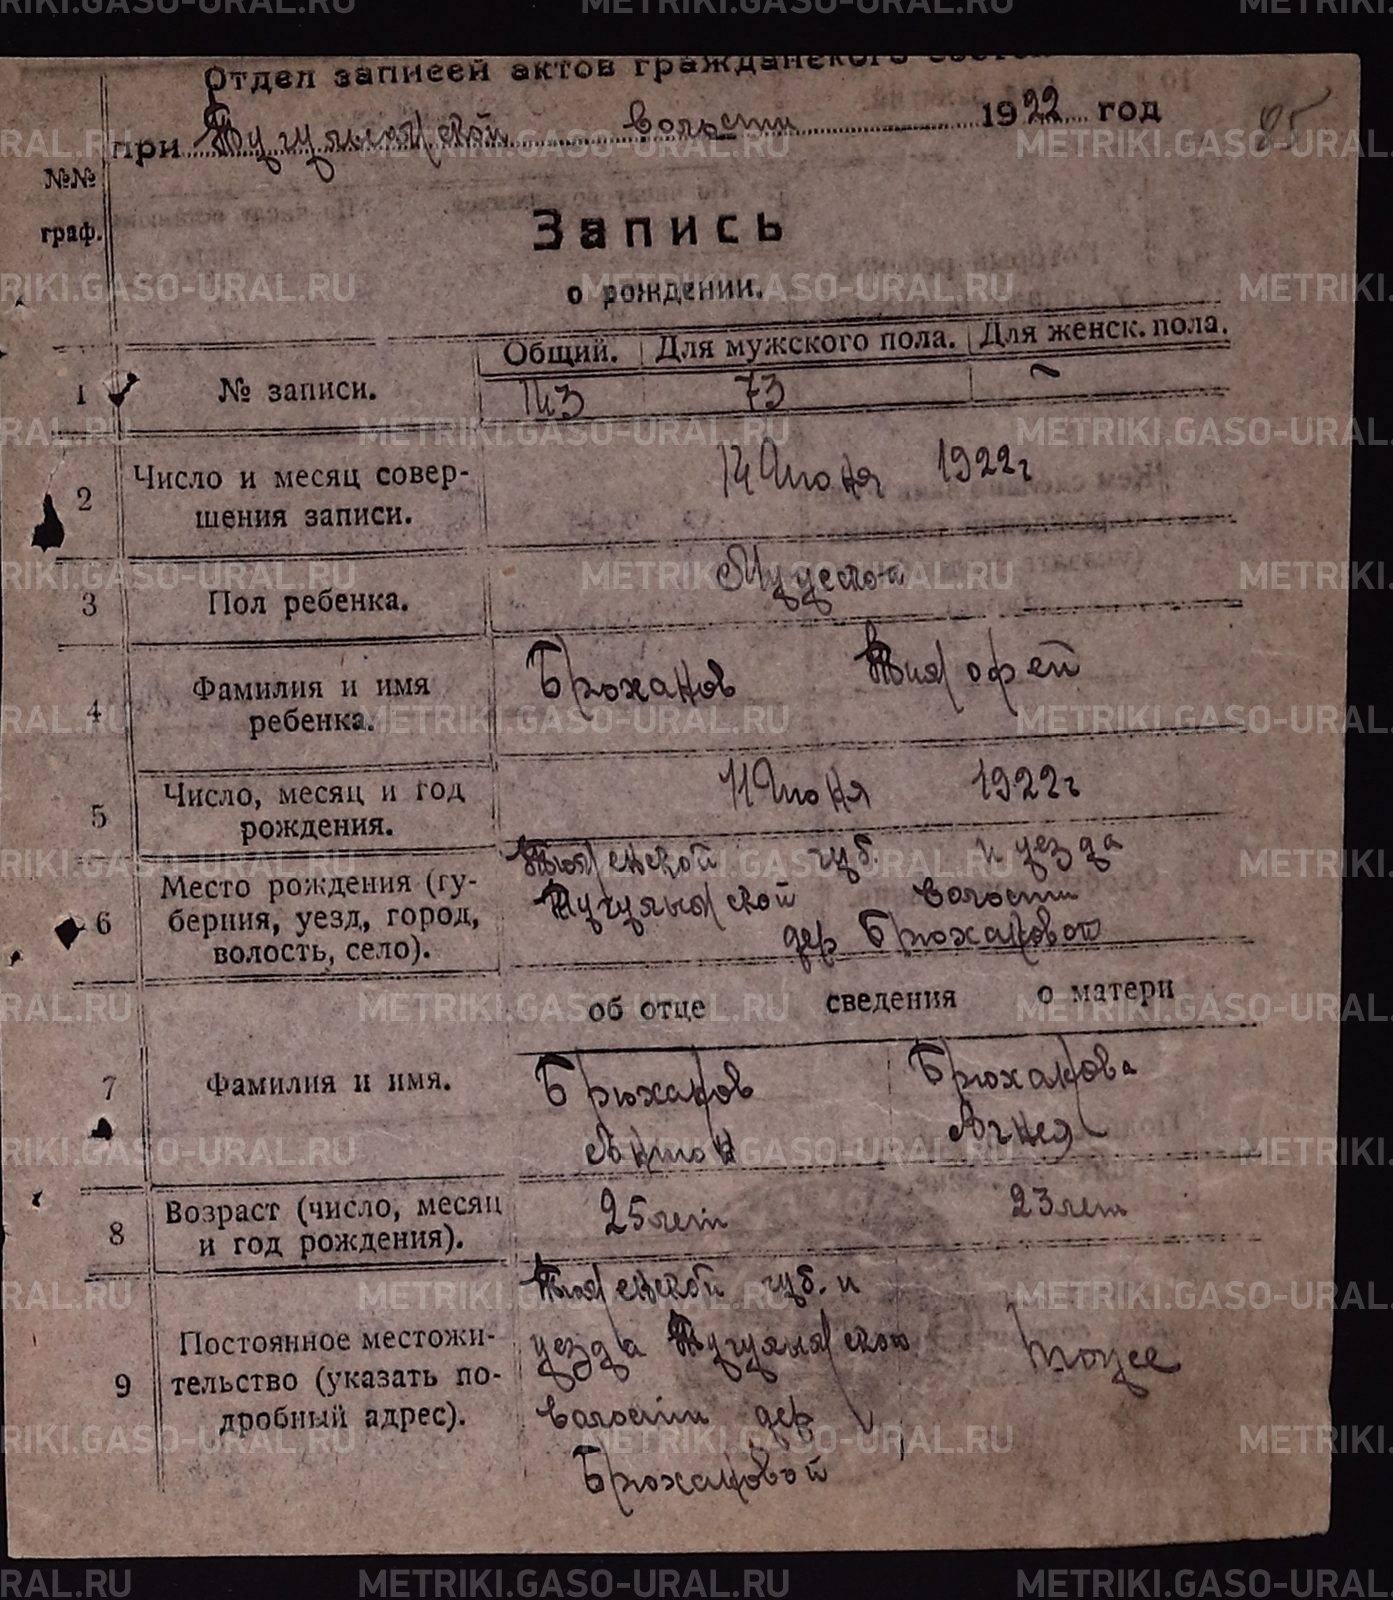 Отдел записей актов гражданского состоя
при Тугулымской волости 1922 год
85
№№
граф.
Запись
о рождении.
Общий. Для мужского пола. Для женск. пола.
1 № записи. 113 73 ~
2 Число и месяц совер-
шения записи. 14 Июня 1922 г
3 Пол ребенка. Мужской
4 Фамилия и имя
ребенка. Брюханов Тимофей
5 Число, месяц и год
рождения. 11 Июня 1922 г
6 Место рождения (гу-
берния, уезд, город,
волость, село).
Тюменской губ. и уезда
Тугулымской волости
дер Брюхановой
об отце сведения о матери
7 Фамилия и имя.
Брюханов Брюханова
Антон Агнея
8 Возраст (число, месяц
и год рождения). 25 лет 23 лет
9 Постоянное местожи-
тельство (указать по-
дробный адрес).
Тюменской губ. и
уезда Тугулымской тоже
волости дер
Брюхановой
METRIKI.GASO-URAL.RU